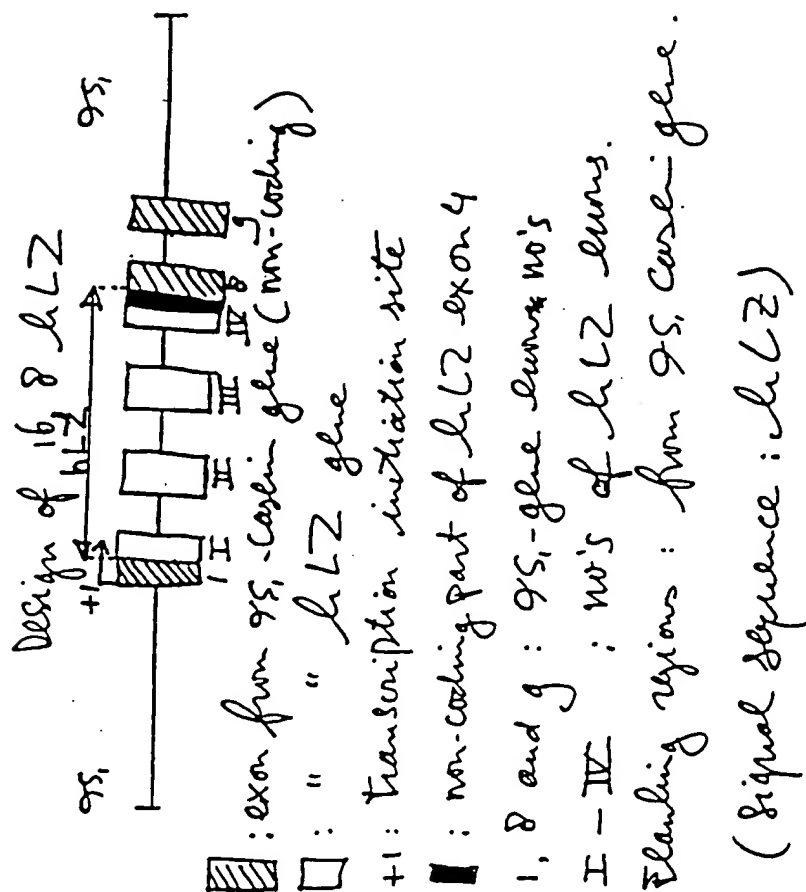 Design of 16,8 hLZ
+1 hLZ
αS₁ αS₁
1 I II III IV 8 9
: exon from αS₁-casein gene (non-coding)
: " " hLZ gene
+1 : transcription initiation site
: non-coding part of hLZ exon 4
1, 8 and 9 : αS₁-gene exons no's
I - IV : no's of hLZ exons.
Flanking regions : from αS₁ casein gene.
(signal sequence : hLZ)